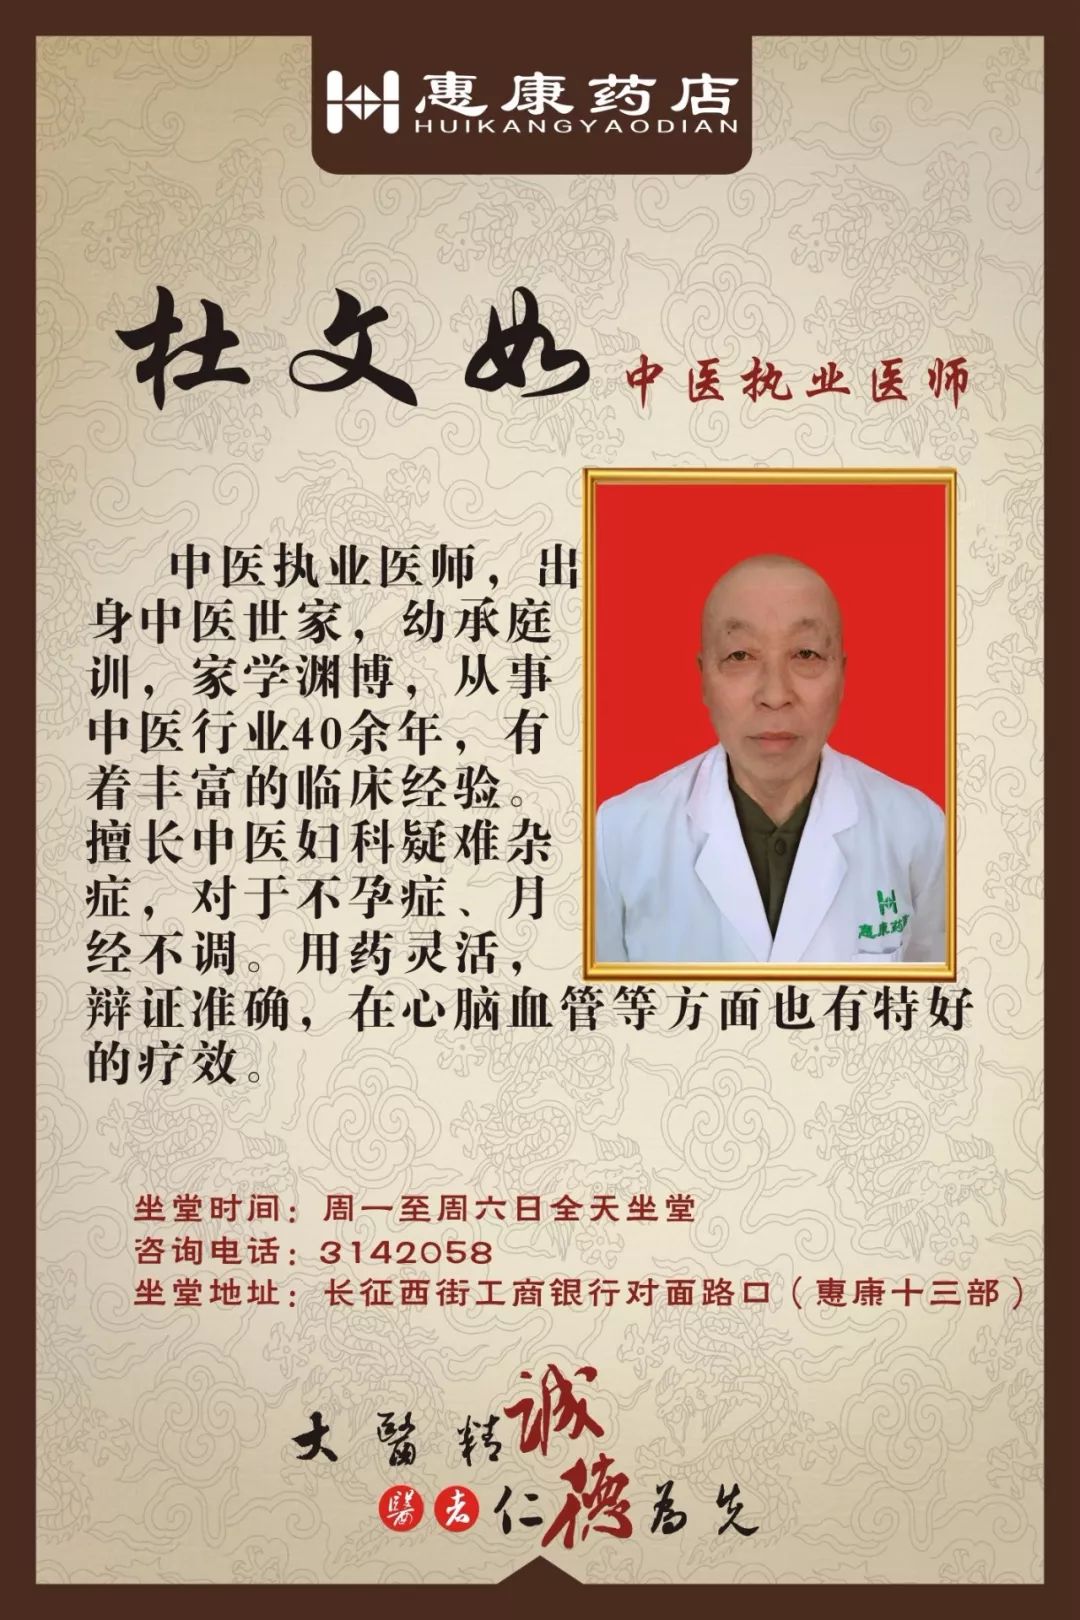 惠康药店
HUIKANGYAODIAN
杜文如 中医执业医师
中医执业医师，出
身中医世家，幼承庭
训，家学渊博，从事
中医行业40余年，有
着丰富的临床经验。
擅长中医妇科疑难杂
症，对于不孕症、月
经不调。用药灵活，
辩证准确，在心脑血管等方面也有特好
的疗效。
惠康药
坐堂时间：周一至周六日全天坐堂
咨询电话：3142058
坐堂地址：长征西街工商银行对面路口（惠康十三部）
大醫精誠
醫者仁德為先